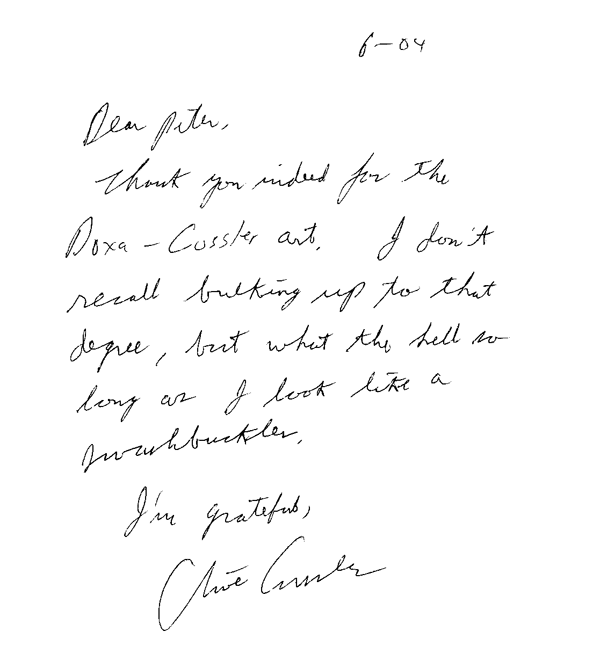 6-04
Dear Peter,
Thank you indeed for the
Doxa - Cussler art. I don't
recall bulking up to that
degree, but what the hell so
long as I look like a
swashbuckler.
I'm grateful,
Clive Cussler